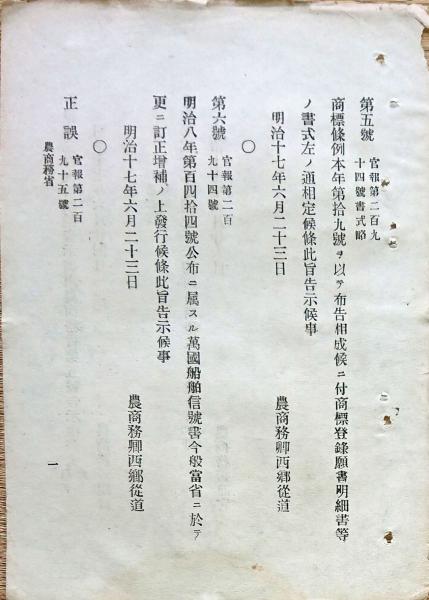 第五號
官報第二百九
十四號書式略
商標條例本年第拾九號ヲ以テ布告相成候ニ付商標登錄願書明細書等
ノ書式左ノ通相定候條此旨告示候事
明治十七年六月二十三日
農商務卿西鄉從道
〇
第六號
官報第二百
九十四號
明治八年第百四拾四號公布ニ属スル萬國船舶信號書今般當省ニ於テ
更ニ訂正增補ノ上發行候條此旨告示候事
明治十七年六月二十三日
農商務卿西鄉從道
〇
正誤
官報第二百
九十五號
農商務省
一